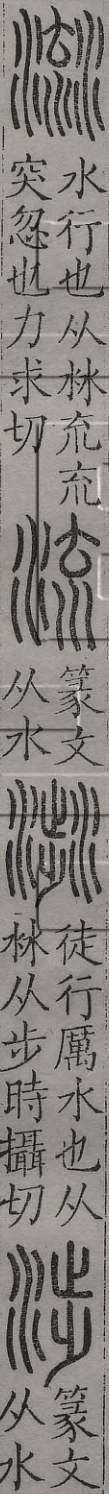 𣹳
水行也从沝㐬㐬
突忽也力求切
流
篆文
从水
𣻣
徒行厲水也从
沝从步時攝切
涉
篆文
从水